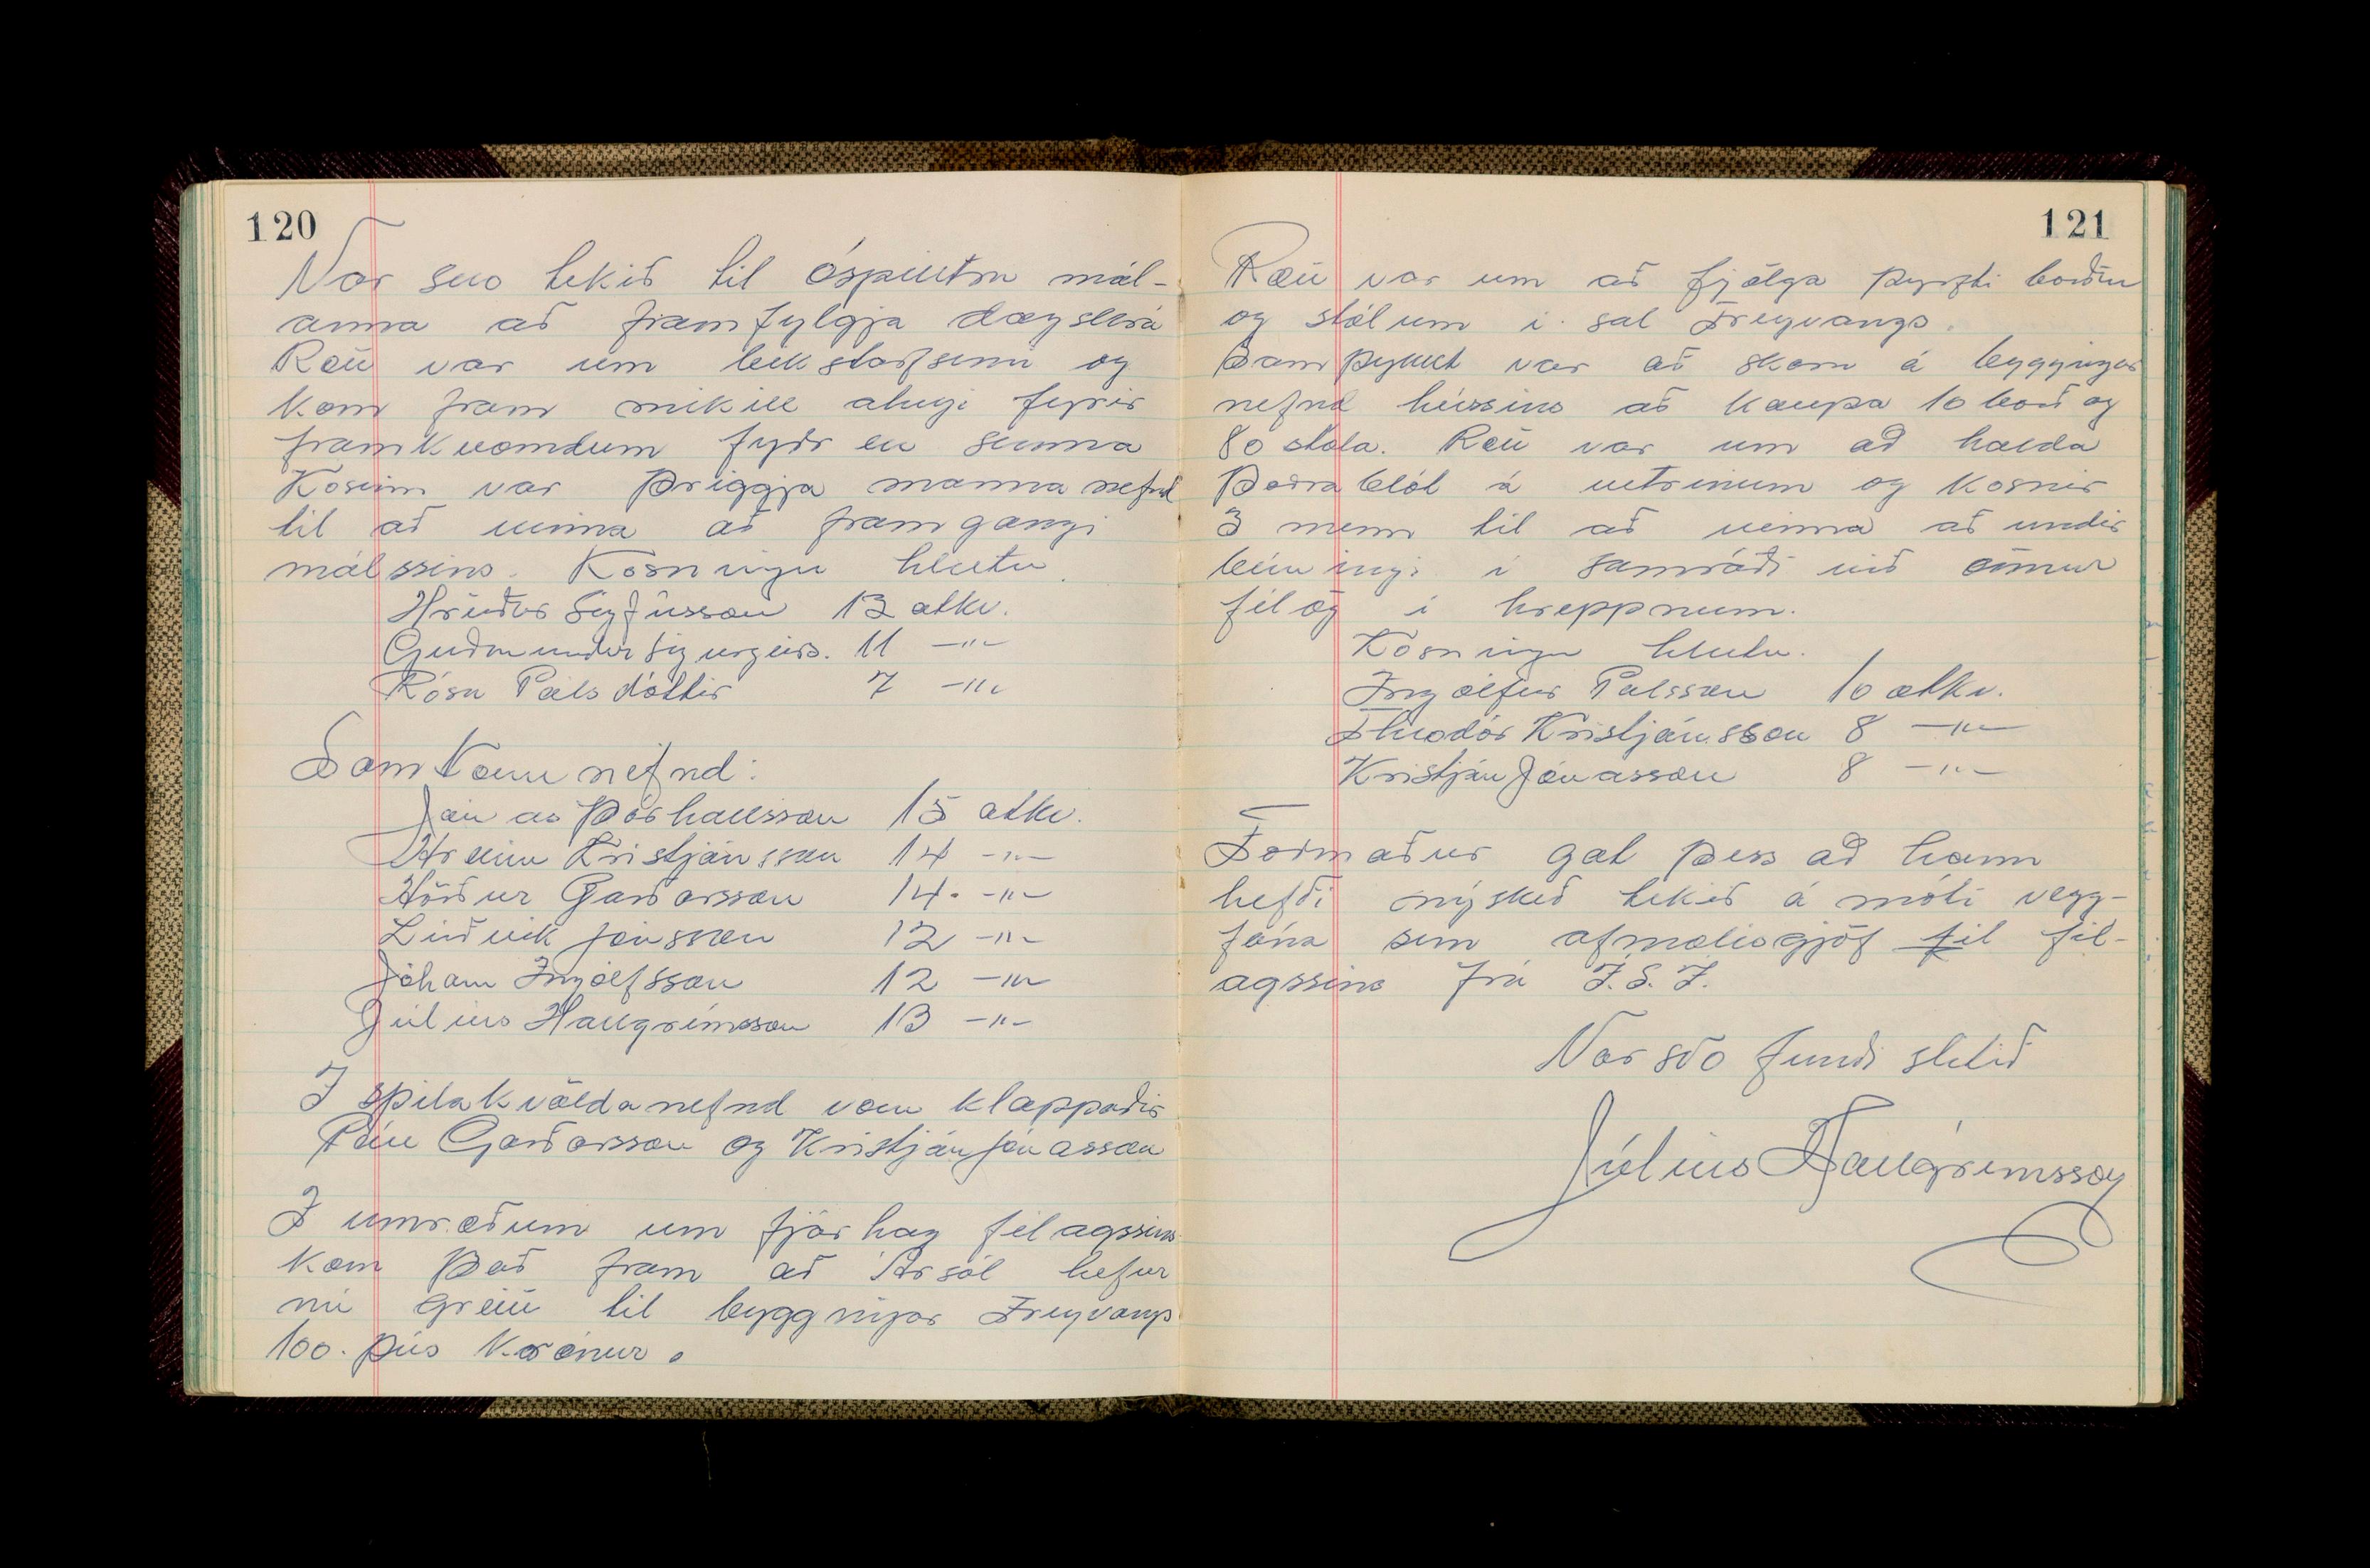 120
Var svo tekið til óspilltra mál-
anna að framfylgja dagskrá
Rætt var um leikstarfsemi og
kom fram mikill áhugi fyrir
framkvæmdum fyrr en seinna
Kosinn var þriggja manna nefnd
til að vinna að framgangi
málssins. Kosningu hlutu
Hreiðar Sigfússon 13 atkv.
Guðmundur Sigurgeirs. 11 -"-
Rósa Pálsdóttir 7 -"-
Samkomunefnd:
Jónas Þórhallsson 15 atkv.
Hreinn Kristjánsson 14 -"-
Hörður Garðarsson 14. -"-
Lúðvík Jónsson 12 -"-
Jóhann Ingólfsson 12 -"-
Júlíus Hallgrímsson 13 -"-
I spilakvöldanefnd voru klappaðir
Páll Garðarsson og Kristján Jónasson
I umræðum um fjárhag félagssins
kom það fram að Ársól hefur
nú greitt til byggingar Freyvangs
100. þús krónur.
121
Rætt var um að fjölga þyrfti borðum
og stólum í sal Freyvangs.
Samþykkt var að skora á byggingar
nefnd hússins að kaupa 10 borð og
80 stóla. Rætt var um að halda
Þorrablót á vetrinum og kosnir
3 menn til að vinna að undir
búningi í samráði við önnur
félög í hreppnum.
Kosningu hlutu.
Ingólfur Pálsson 10 atkv.
Theodór Kristjánsson 8 -"-
Kristján Jónasson 8 -"-
Formaður gat þess að hann
hefði nýskeð tekið á móti vegg-
fána sem afmælisgjöf til fél-
agssins frá Í.S.Í.
Var svo fundi slitið
Júlíus Hallgrímsson